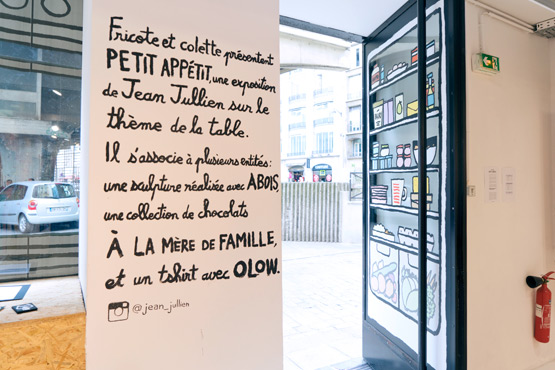 Fricote et colette présentent
PETIT APPÉTIT, une exposition
de Jean Jullien sur le
thème de la table.
Il s'associe à plusieurs entités:
une sculpture réalisée avec ABOIS,
une collection de chocolats
À LA MÈRE DE FAMILLE,
et un tshirt avec OLOW.
@jean_jullien